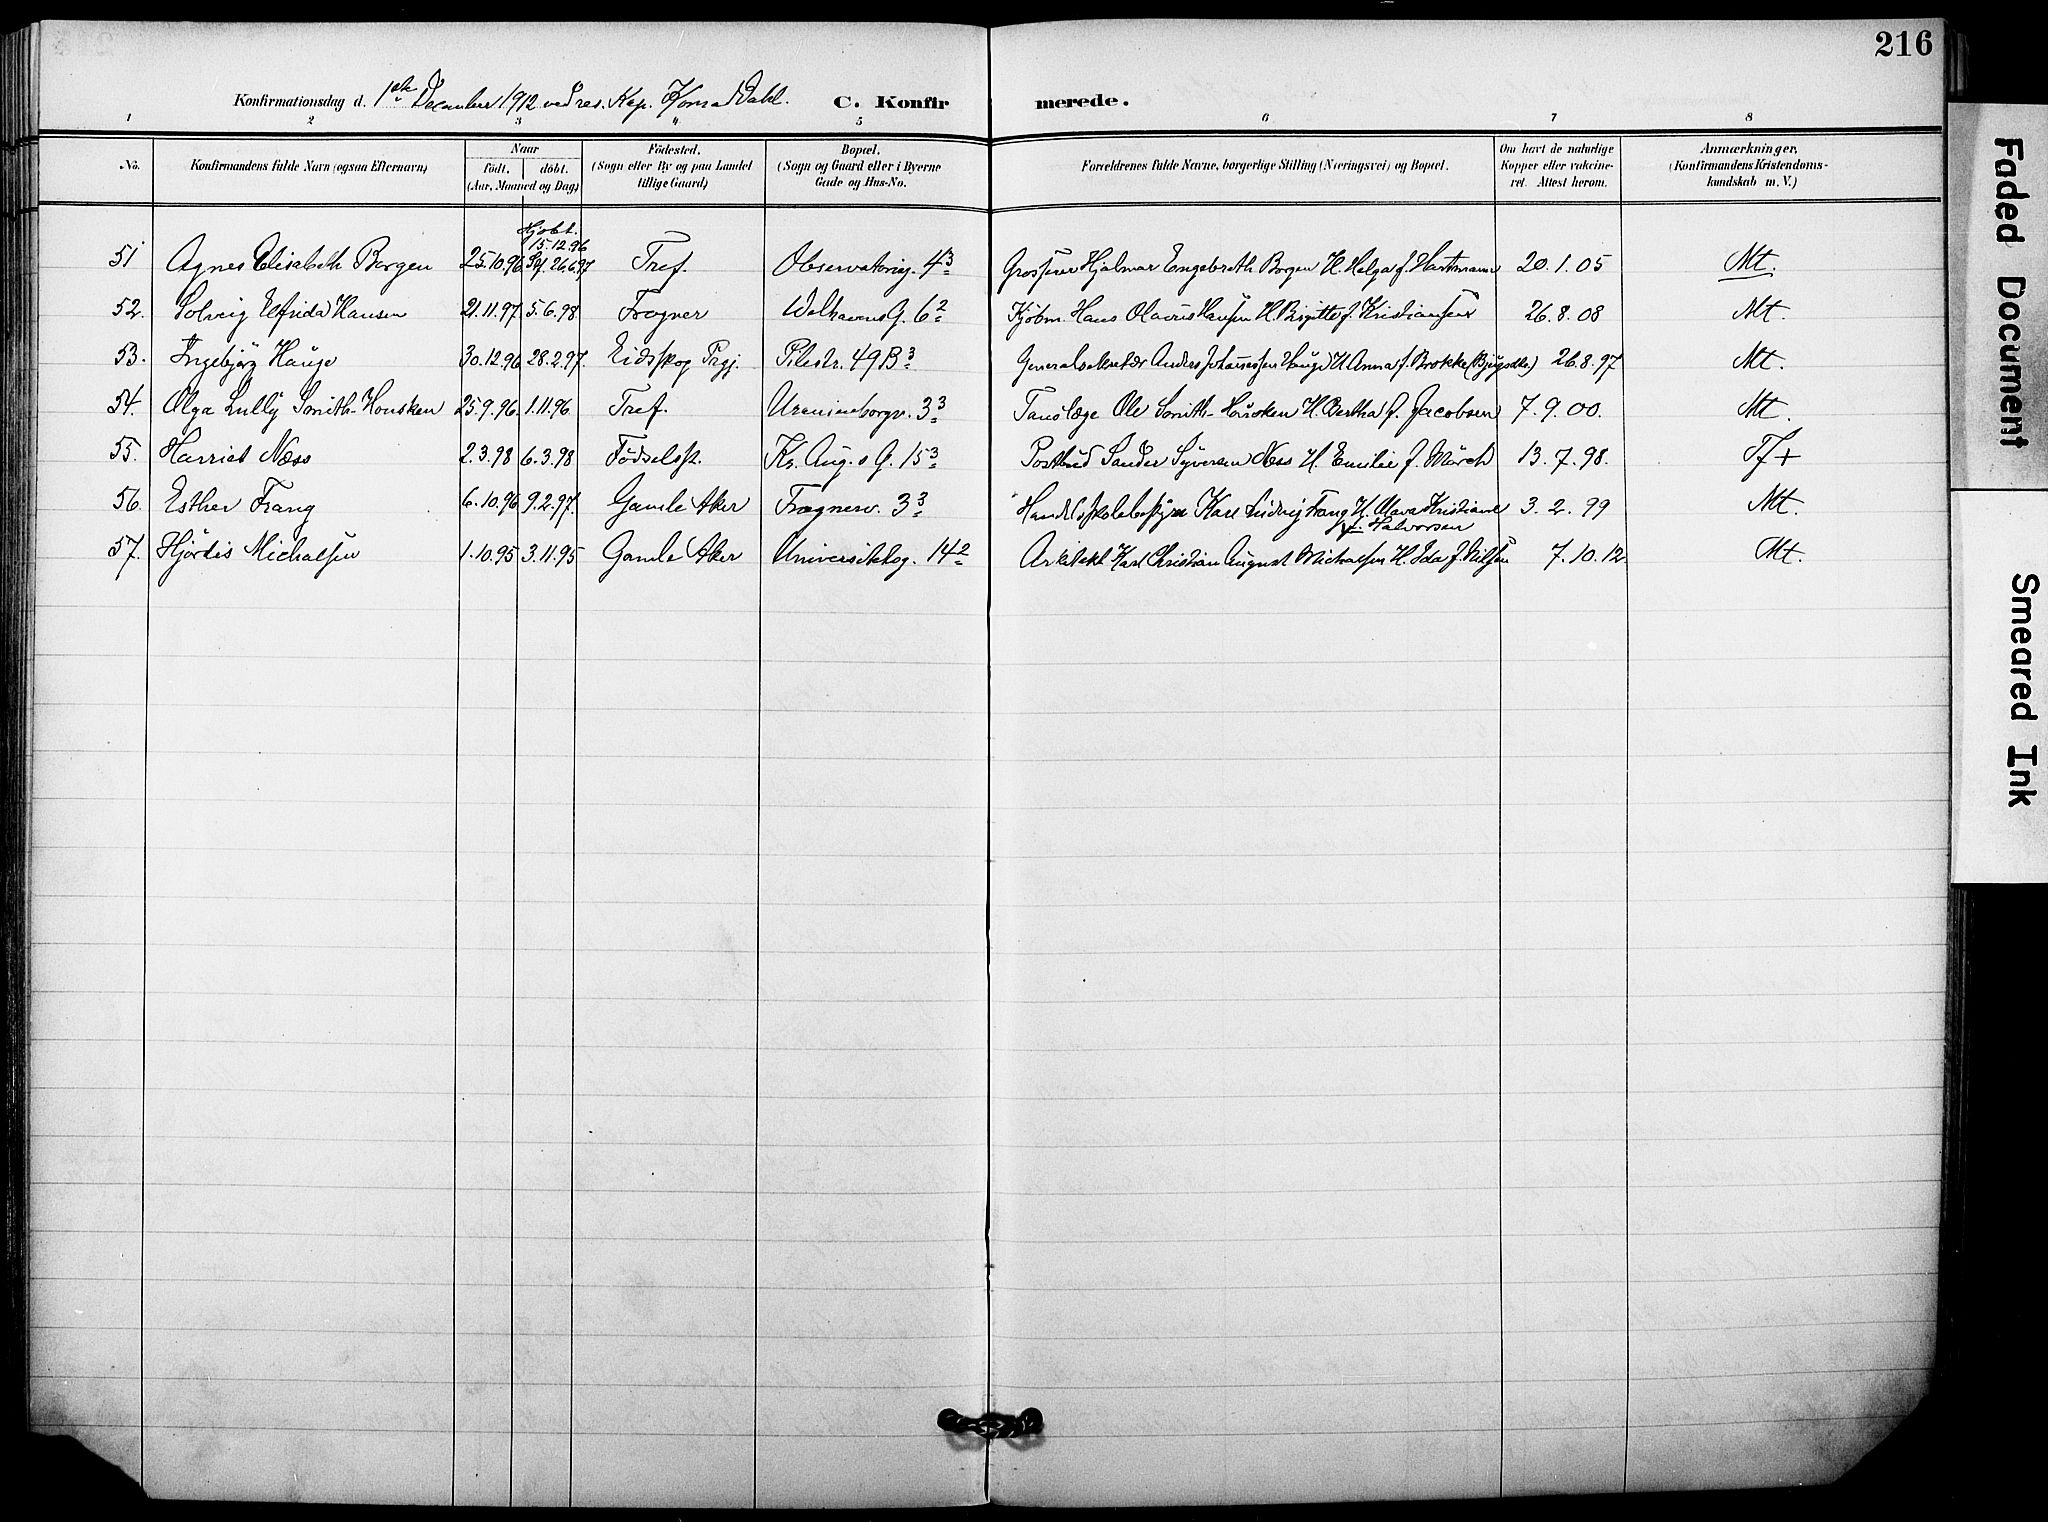 216
Konfirmationsdag d. 1ste December 1912 ved res. Kap. Konrad Dahl. C. Konfirmerede.
1 2 3 4 5 6 7 8
No. Konfirmandens fulde Navn (ogsaa Efternavn) Naar født. døbt. (Aar, Maaned og Dag) Födested. (Sogn eller By og paa Landet tillige Gaard) Bopæl. (Sogn og Gaard eller i Byerne Gade og Hus-No. Forældrenes fulde Navne, borgerlige Stilling (Næringsvei) og Bopæl. Om havt de naturlige Kopper eller vakcineret. Attest herom. Anmærkninger, (Konfirmandens Kristendomskundskab m. V.)
Hjdbt. 15.12.96
51 Agnes Elisabeth Borgen 25.10.96 Stf. 26.6.97 Tref. Observatorieg. 4³ Grosserer Hjalmar Engebreth Borgen H. Helga f. Hartmann 20.1.05 Mt.
52. Solveig Elfrida Hansen 21.11.97 5.6.98. Frogner Welhavens G. 6² Kjøbm. Hans Olavus Hansen H. Birgitte f. Kristiansen 26.8.08 Mt.
53. Ingebjørg Hauge 30.12.96 28.2.97. Eidsskog Prgj. Pilestr. 49B³ Generalsekretær Anders Johannessen Hauge H. Anna f. Brokke 26.8.97 Mt.
54. Olga Lully Smith-Housken 25.9.96 1.11.96 Tref. Uranienborgv. 3³ Tandlæge Ole Smith-Housken H. Bertha f. Jacobsen 7.9.00. Mt.
55. Harriet Næss 2.3.98 6.3.98 Födselsst. Kr. Aug.s G. 15³ Postbud Sander Syversen Næss H. Emilie f. Mörch 13.7.98. Tf +
56. Esther Frang 6.10.96 9.2.97. Gamle Aker Frognerv. 3³ Handelsskolebestyrer Karl Ludvig Frang H. Mara Kristiane f. Halvorsen 3.2.99 Mt.
57. Hjördis Michalsen 1.10.95 3.11.95 Gamle Aker Universitetsg. 14² Arkitekt Karl Christian August Michalsen H. Ida f. Nilsen 7.10.12. Mt.
Faded Document
Smeared Ink